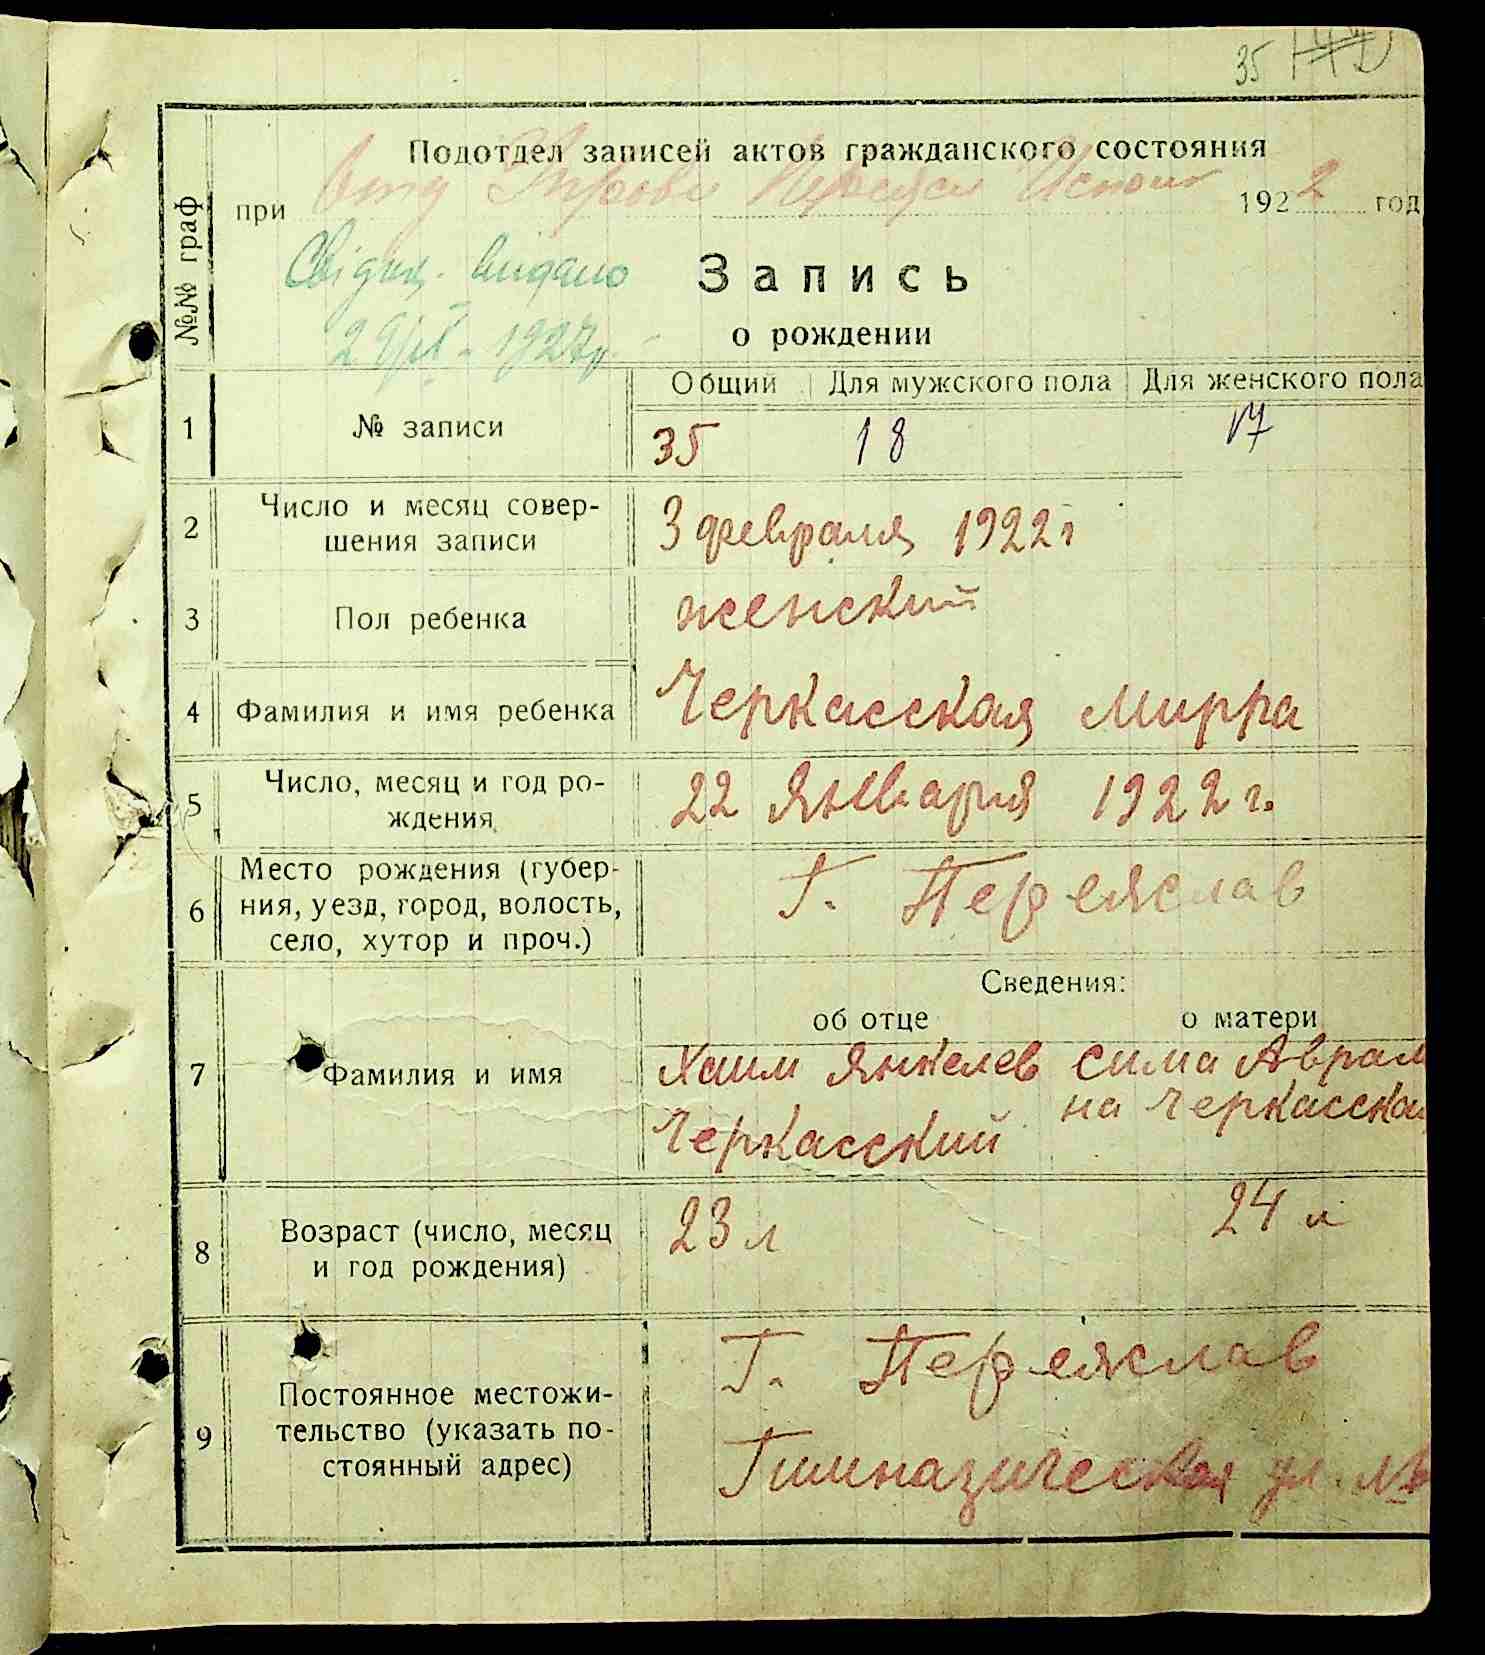 35
Подотдел записей актов гражданского состояния
при Отд Управ Переясл Исполк 1922 год
Свідоц. видано
1927р.
Запись
о рождении
№№ граф
Общий Для мужского пола Для женского пола
1 № записи 35 18 17
2 Число и месяц совер-
шения записи 3 февраля 1922 г
3 Пол ребенка женский
4 Фамилия и имя ребенка Черкасская Мирра
5 Число, месяц и год ро-
ждения 22 Января 1922 г.
6 Место рождения (губер-
ния, уезд, город, волость, Г. Переяслав
село, хутор и проч.)
Сведения:
об отце о матери
7 Фамилия и имя Хаим Янкелев Сима Аврам
на Черкасская
Черкасский
8 Возраст (число, месяц
и год рождения) 23 л 24 л
9 Постоянное местожи-
тельство (указать по-
стоянный адрес)
Г. Переяслав
Гимназическая ул. №